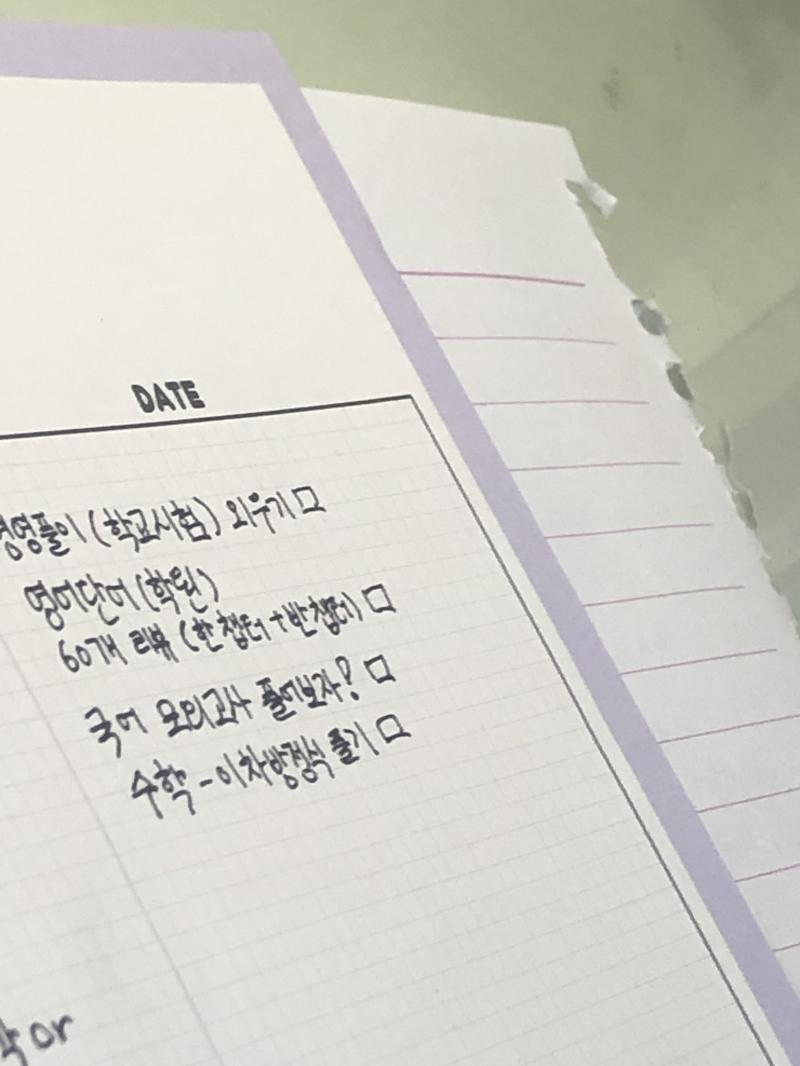 DATE
영영풀이 (학교시험) 외우기 □
영어단어 (학원)
60개 리뷰 (한 챕터 + 반 챕터) □
국어 모의고사 풀어보자! □
수학 - 이차방정식 풀기 □
or